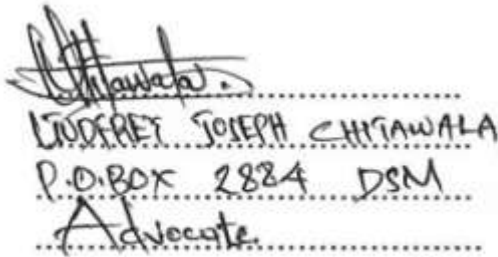 Chitawala.
GODFREY JOSEPH CHITAWALA
P.O.BOX 2884 DSM
Advocate